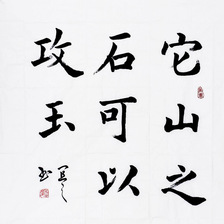 它山之
石可以
攻玉